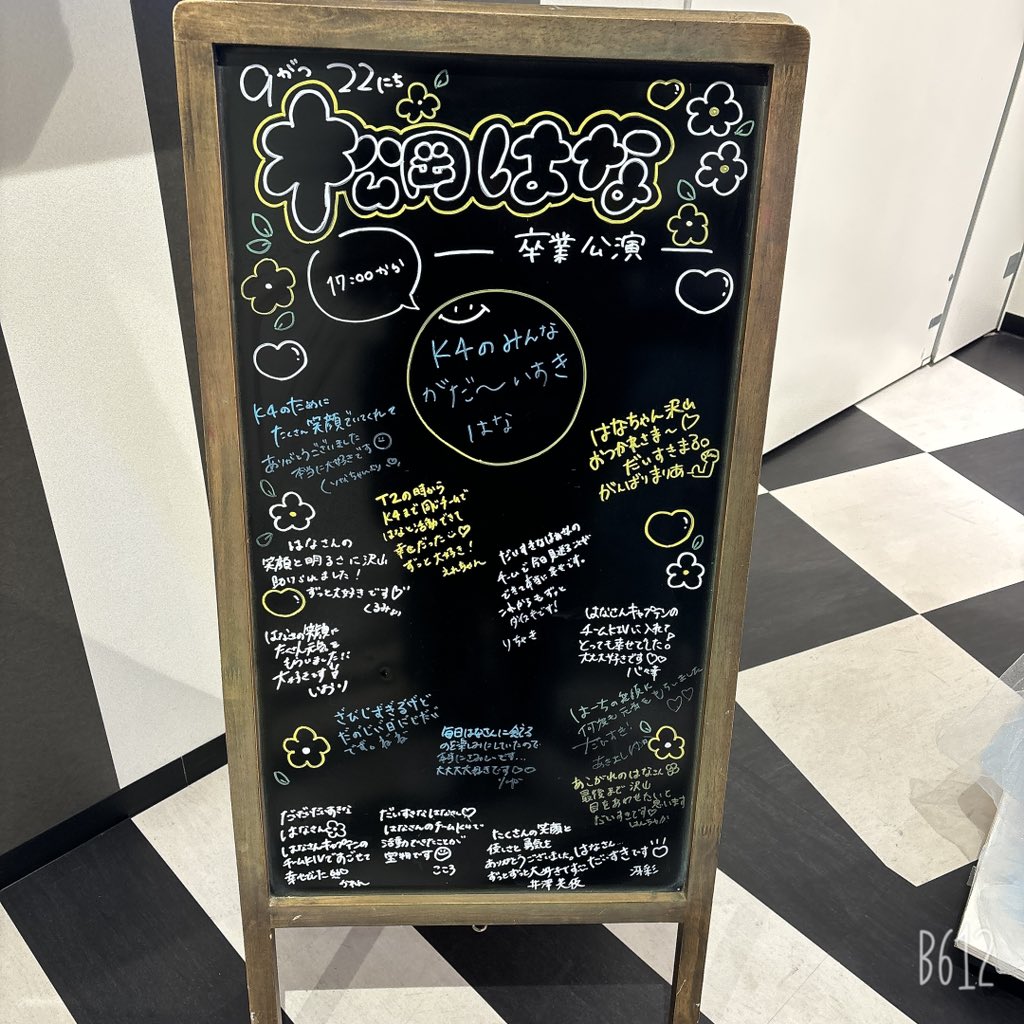 9がつ22にち
松岡はな
卒業公演
17:00から
K4のみんな
がだ〜いすき
はな
K4のために
たくさん笑顔でいてくれて
ありがとうございました
本当に大好きです
はなちゃん沢山
おつかれさま〜♡
だいすきまる。
がんばりまりあ
T2の時から
K4まで同じチームで
はなと活動できて
幸せだった♡
ずっと大好き!
えれちゃん
はなさんの
笑顔と明るさに沢山
助けられました!
ずっと大好きです♡
くるみ
だいすきなはなさんの
チームで今日見送ることが
できて本当に幸せです。
これからもずっと
だいすきです!
りちゃき
はなさんキャプテンの
チームKⅣに入れて
とっても幸せでした!
大大大好きです♡♡
はなさんの笑顔に
たくさん元気を
もらいました!!
大好きです
いおり
さびしすぎるけど
です。
はーちの笑顔に
何度も元気をもらいました
だいすき!
毎日はなさんに会える
のを楽しみにしていたので
本当にさみしいです…
大大大大好きです♡♡
あこがれのはなさん
最後まで沢山
目をあわせたいと思います
だいすきです♡
だいだいだいすきな
はなさん
はなさんキャプテンの
チームKⅣですごせて
幸せでした
かれん
だいすきなはなさん♡
はなさんのチームK4で
活動できたことが
宝物です
こころ
たくさんの笑顔と
優しさと勇気を
ありがとうございました。はなさん…
ずっとずっと大好きです
井澤美優
だいすきです
冴彩
B612